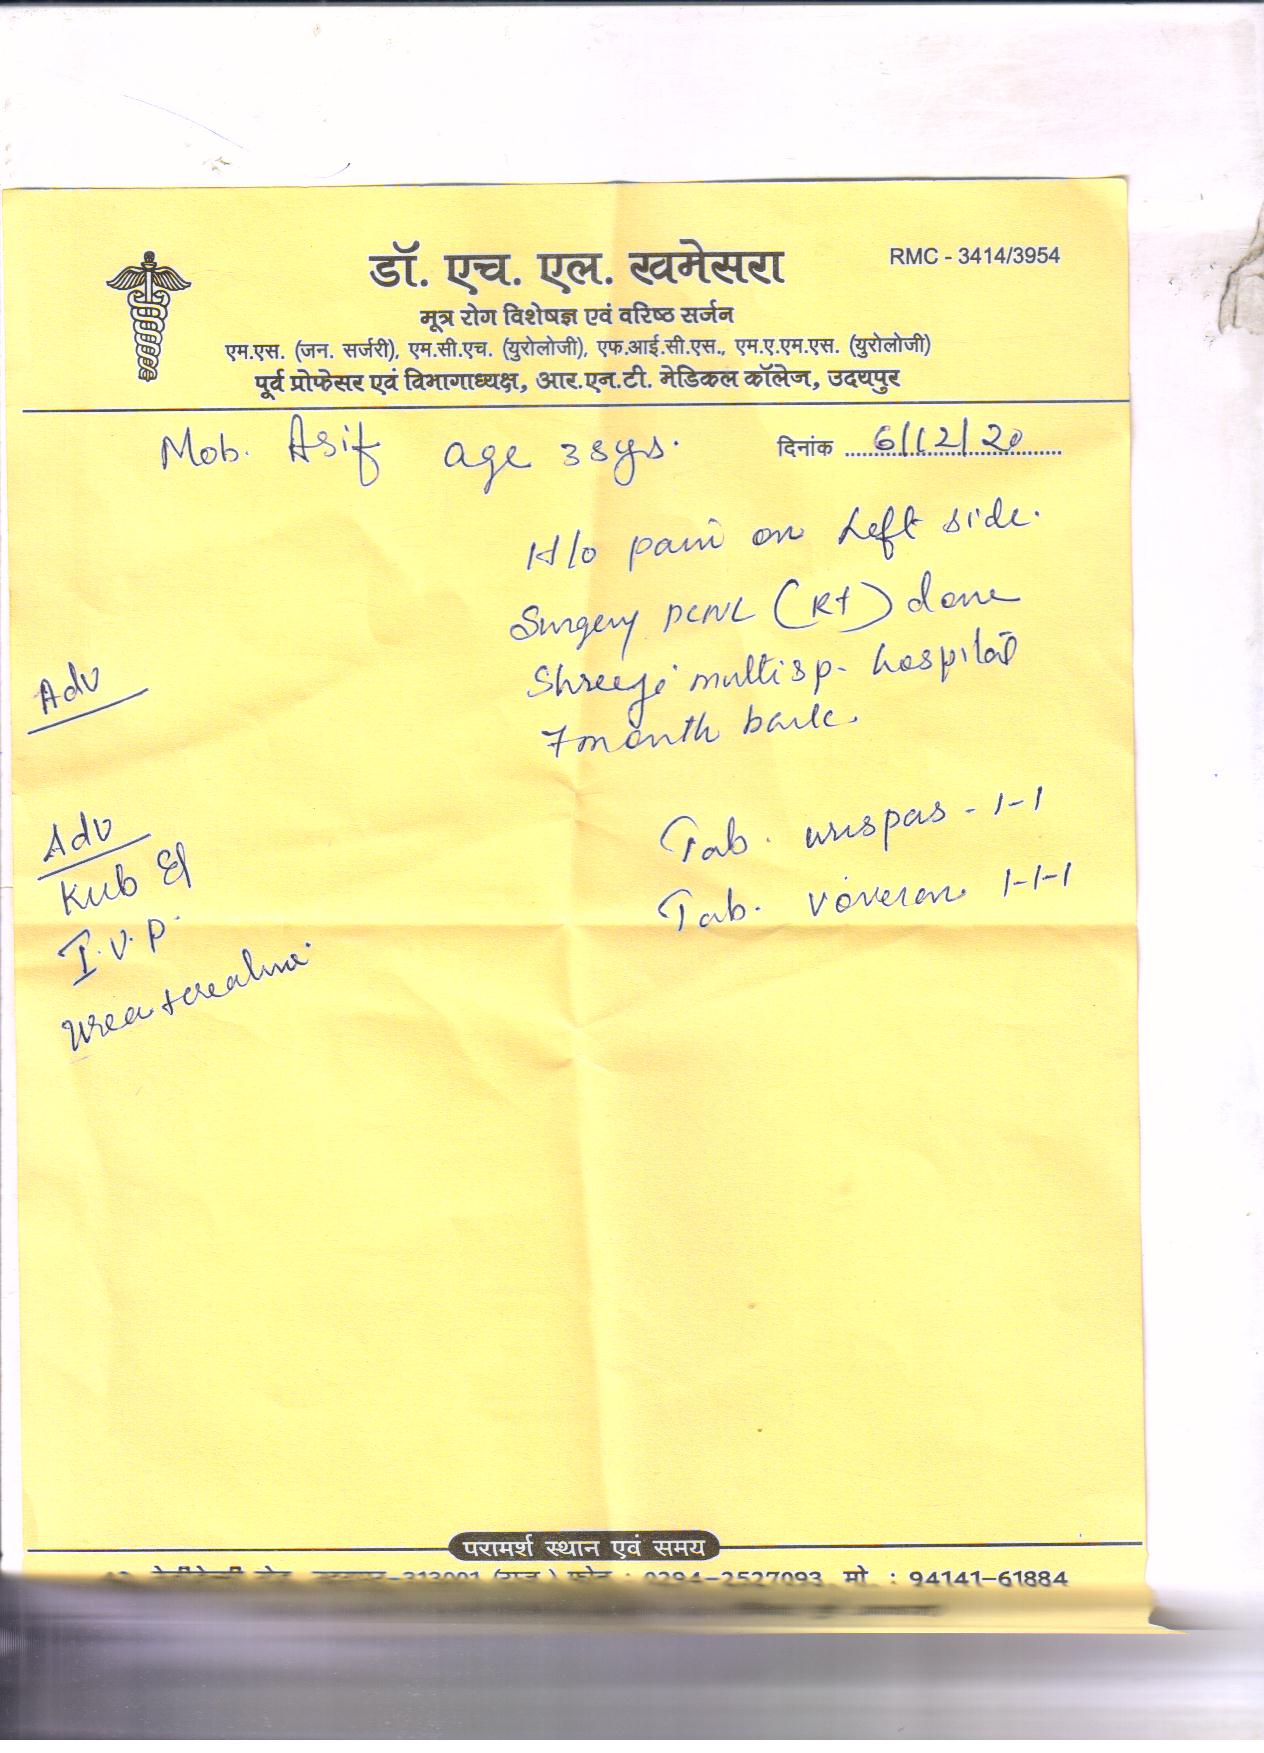 डॉ. एच. एल. खमेसरा
RMC - 3414/3954
मूत्र रोग विशेषज्ञ एवं वरिष्ठ सर्जन
एम.एस. (जन. सर्जरी), एम.सी.एच. (युरोलोजी), एफ.आई.सी.एस., एम.ए.एम.एस. (युरोलोजी)
पूर्व प्रोफेसर एवं विभागाध्यक्ष, आर.एन.टी. मेडिकल कॉलेज, उदयपुर
Moh. Asif age 38ys. दिनांक 6/12/20
H/o pain on left side.
Surgery PCNL (Rt) done
Shreeji multisp. hospital
7 month back.
Adv
Tab. urispas - 1-1
Tab. voveran 1-1-1
Adv
Kub &
I.V.P.
Urea +
परामर्श स्थान एवं समय
-313001 (राज.) फोन : 0294-2527093, मो. : 94141-61884